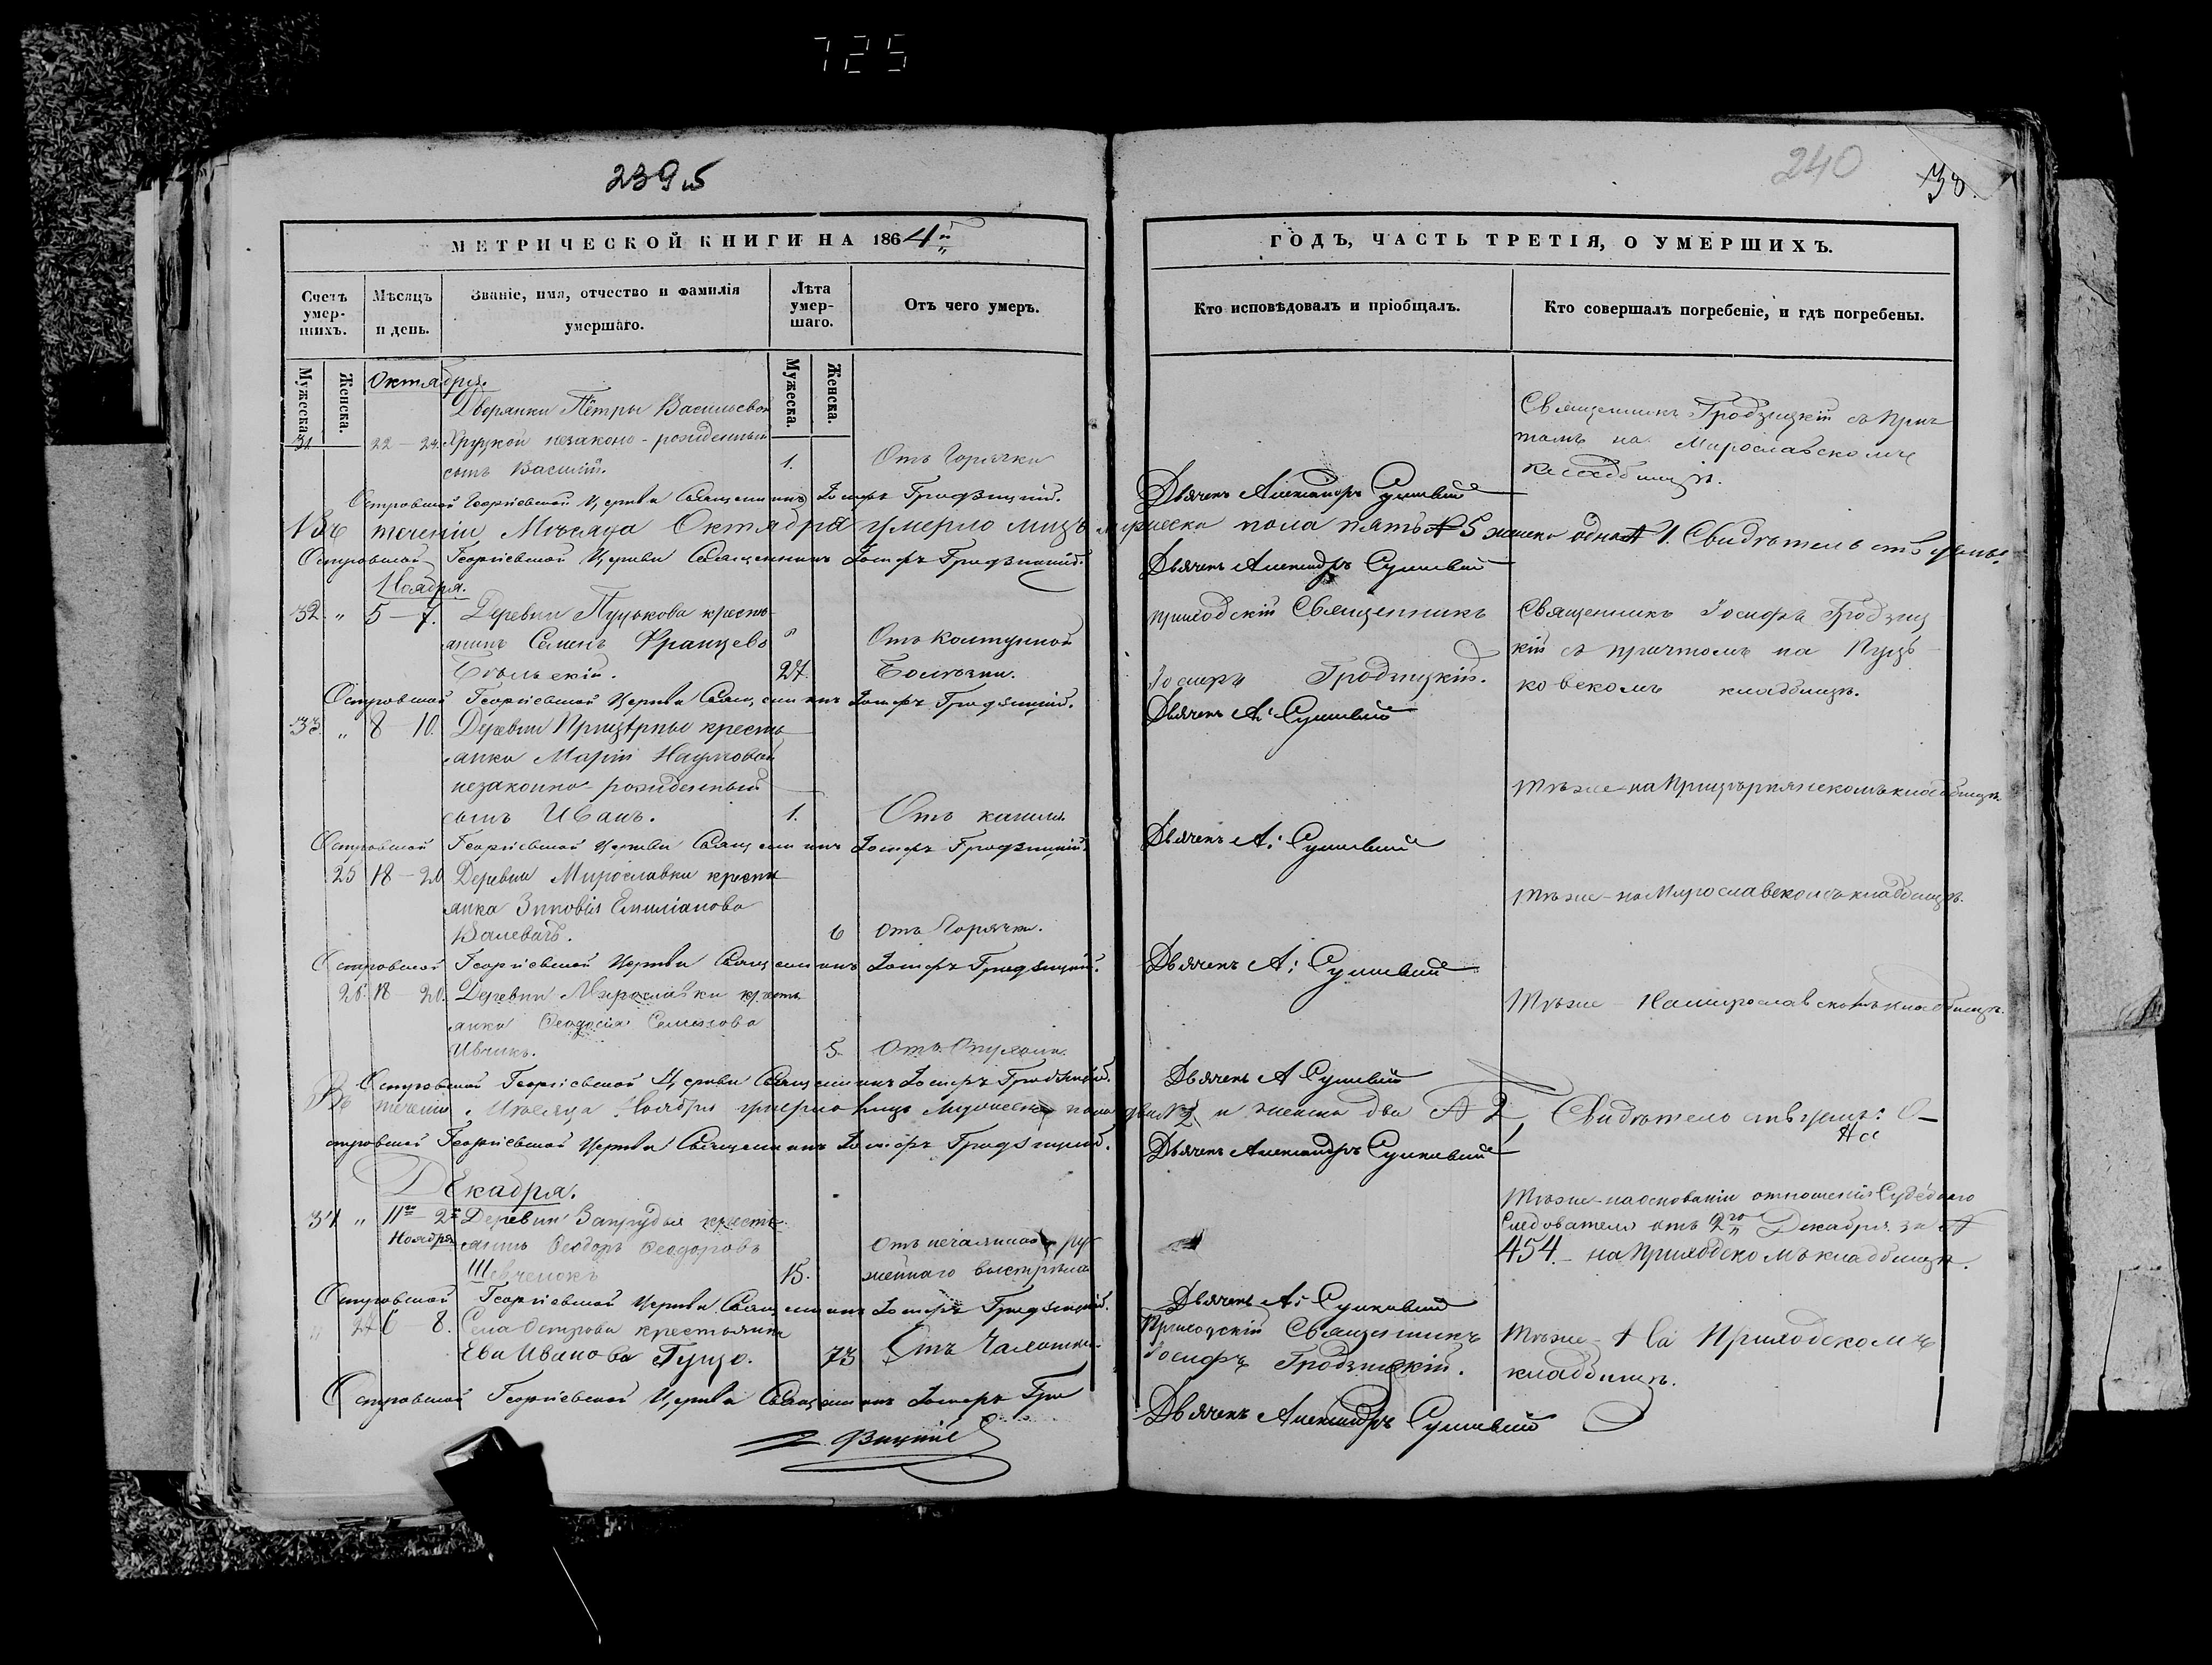 725
239 об
240
38.
МЕТРИЧЕСКОЙ КНИГИ НА 1864й
ГОДЪ, ЧАСТЬ ТРЕТІЯ, О УМЕРШИХЪ.
Счетъ умер-
шихъ.
Мѣсяцъ
и день.
Званіе, имя, отчество и фамилія
умершаго.
Лѣта
умер-
шаго.
Отъ чего умеръ.
Кто исповѣдовалъ и пріобщалъ.
Кто совершалъ погребеніе, и гдѣ погребены.
Мужеска.
Женска.
Мужеска.
Женска.
Октября.
Дворянки Пётры Васильевой
31 22 – 24. Хруцкой незаконо-рожденный
сынъ Василій. 1. Отъ Горячки
Священникъ Гродзицкій съ Прич
томъ на Мирославскомъ
кладбищѣ.
Островской Георгіевской Церкви Священникъ Іосифъ Гродзицкій.
Дьячекъ Александръ
Въ теченіи Мѣсяца Октября умерло лицъ мужеска пола пять № 5 женска одна № 1. Свидѣтельствуемъ:
Островской Георгіевской Церкви Священникъ Іосифъ Гродзицкій.
Дьячекъ Александръ
Ноября.
32. „ 5 – 7. Деревни Пуцькова кресть-
янинъ Семенъ Францевъ
Бѣльскій. 27. Отъ
Болѣзни.
приходскій Священникъ
Іосифъ Гродзицкій.
Священникъ Іосифъ Гродзиц
кій съ причтомъ на Пуць
ковскомъ кладбищѣ.
Островской Георгіевской Церкви Священникъ Іосифъ Гродзицкій.
Дьячекъ А:
33. „ 8 10. Деревни Прищѣрны кресть-
янки Маріи Наумовой
незаконно-рожденный
сынъ Иванъ. 1. Отъ кашля
Тѣже – на кладбищѣ.
Островской Георгіевской Церкви Священникъ Іосифъ Гродзицкій.
Дьячекъ А:
25 18 – 20 Деревни Мирославки кресть-
янка Зиновія Емиліанова
Валевачъ. 6 отъ Горячки.
Тѣже – на Мирославскомъ кладбищѣ.
Островской Георгіевской Церкви Священникъ Іосифъ Гродзицкій.
Дьячекъ А:
26. 18 – 20. Деревни Мирославки кресть-
янка Ѳеодосія Семенова
Ивчикъ. 5. отъ
Тѣже – На Мирославскомъ кладбищѣ.
Островской Георгіевской Церкви Священникъ Іосифъ Гродзицкій.
Дьячекъ А
Въ теченіи Мѣсяца Ноября умерло лицъ Мужеска пола два № 2 и женска два № 2, Свидѣтельствуемъ: О-
стровской Георгіевской Церкви Священникъ Іосифъ Гродзицкій.
Дьячекъ Александръ
Декабря.
34 „ 11го – 2го Деревни Запрудья кресть-
Ноября янинъ Ѳеодоръ Ѳеодоровъ
Шевченокъ 15. Отъ нечаяннаго ру-
жейнаго выстрѣла
Тѣже – на основаніи отношенія Судебнаго
Слѣдователя отъ 2го Декабря за №
454. – на Приходскомъ кладбищѣ.
Островской Георгіевской Церкви Священникъ Іосифъ Гродзицкій.
Дьячекъ А:
„ 27 6 – 8. Села Острова крестьянка
Ева Иванова Гуцло. 73 Отъ Чахотки.
Приходскій Священникъ
Іосифъ Гродзицкій.
Тѣже – На Приходскомъ
кладбищѣ.
Островской Георгіевской Церкви Священникъ Іосифъ Гро
дзицкій
Дьячекъ Александръ